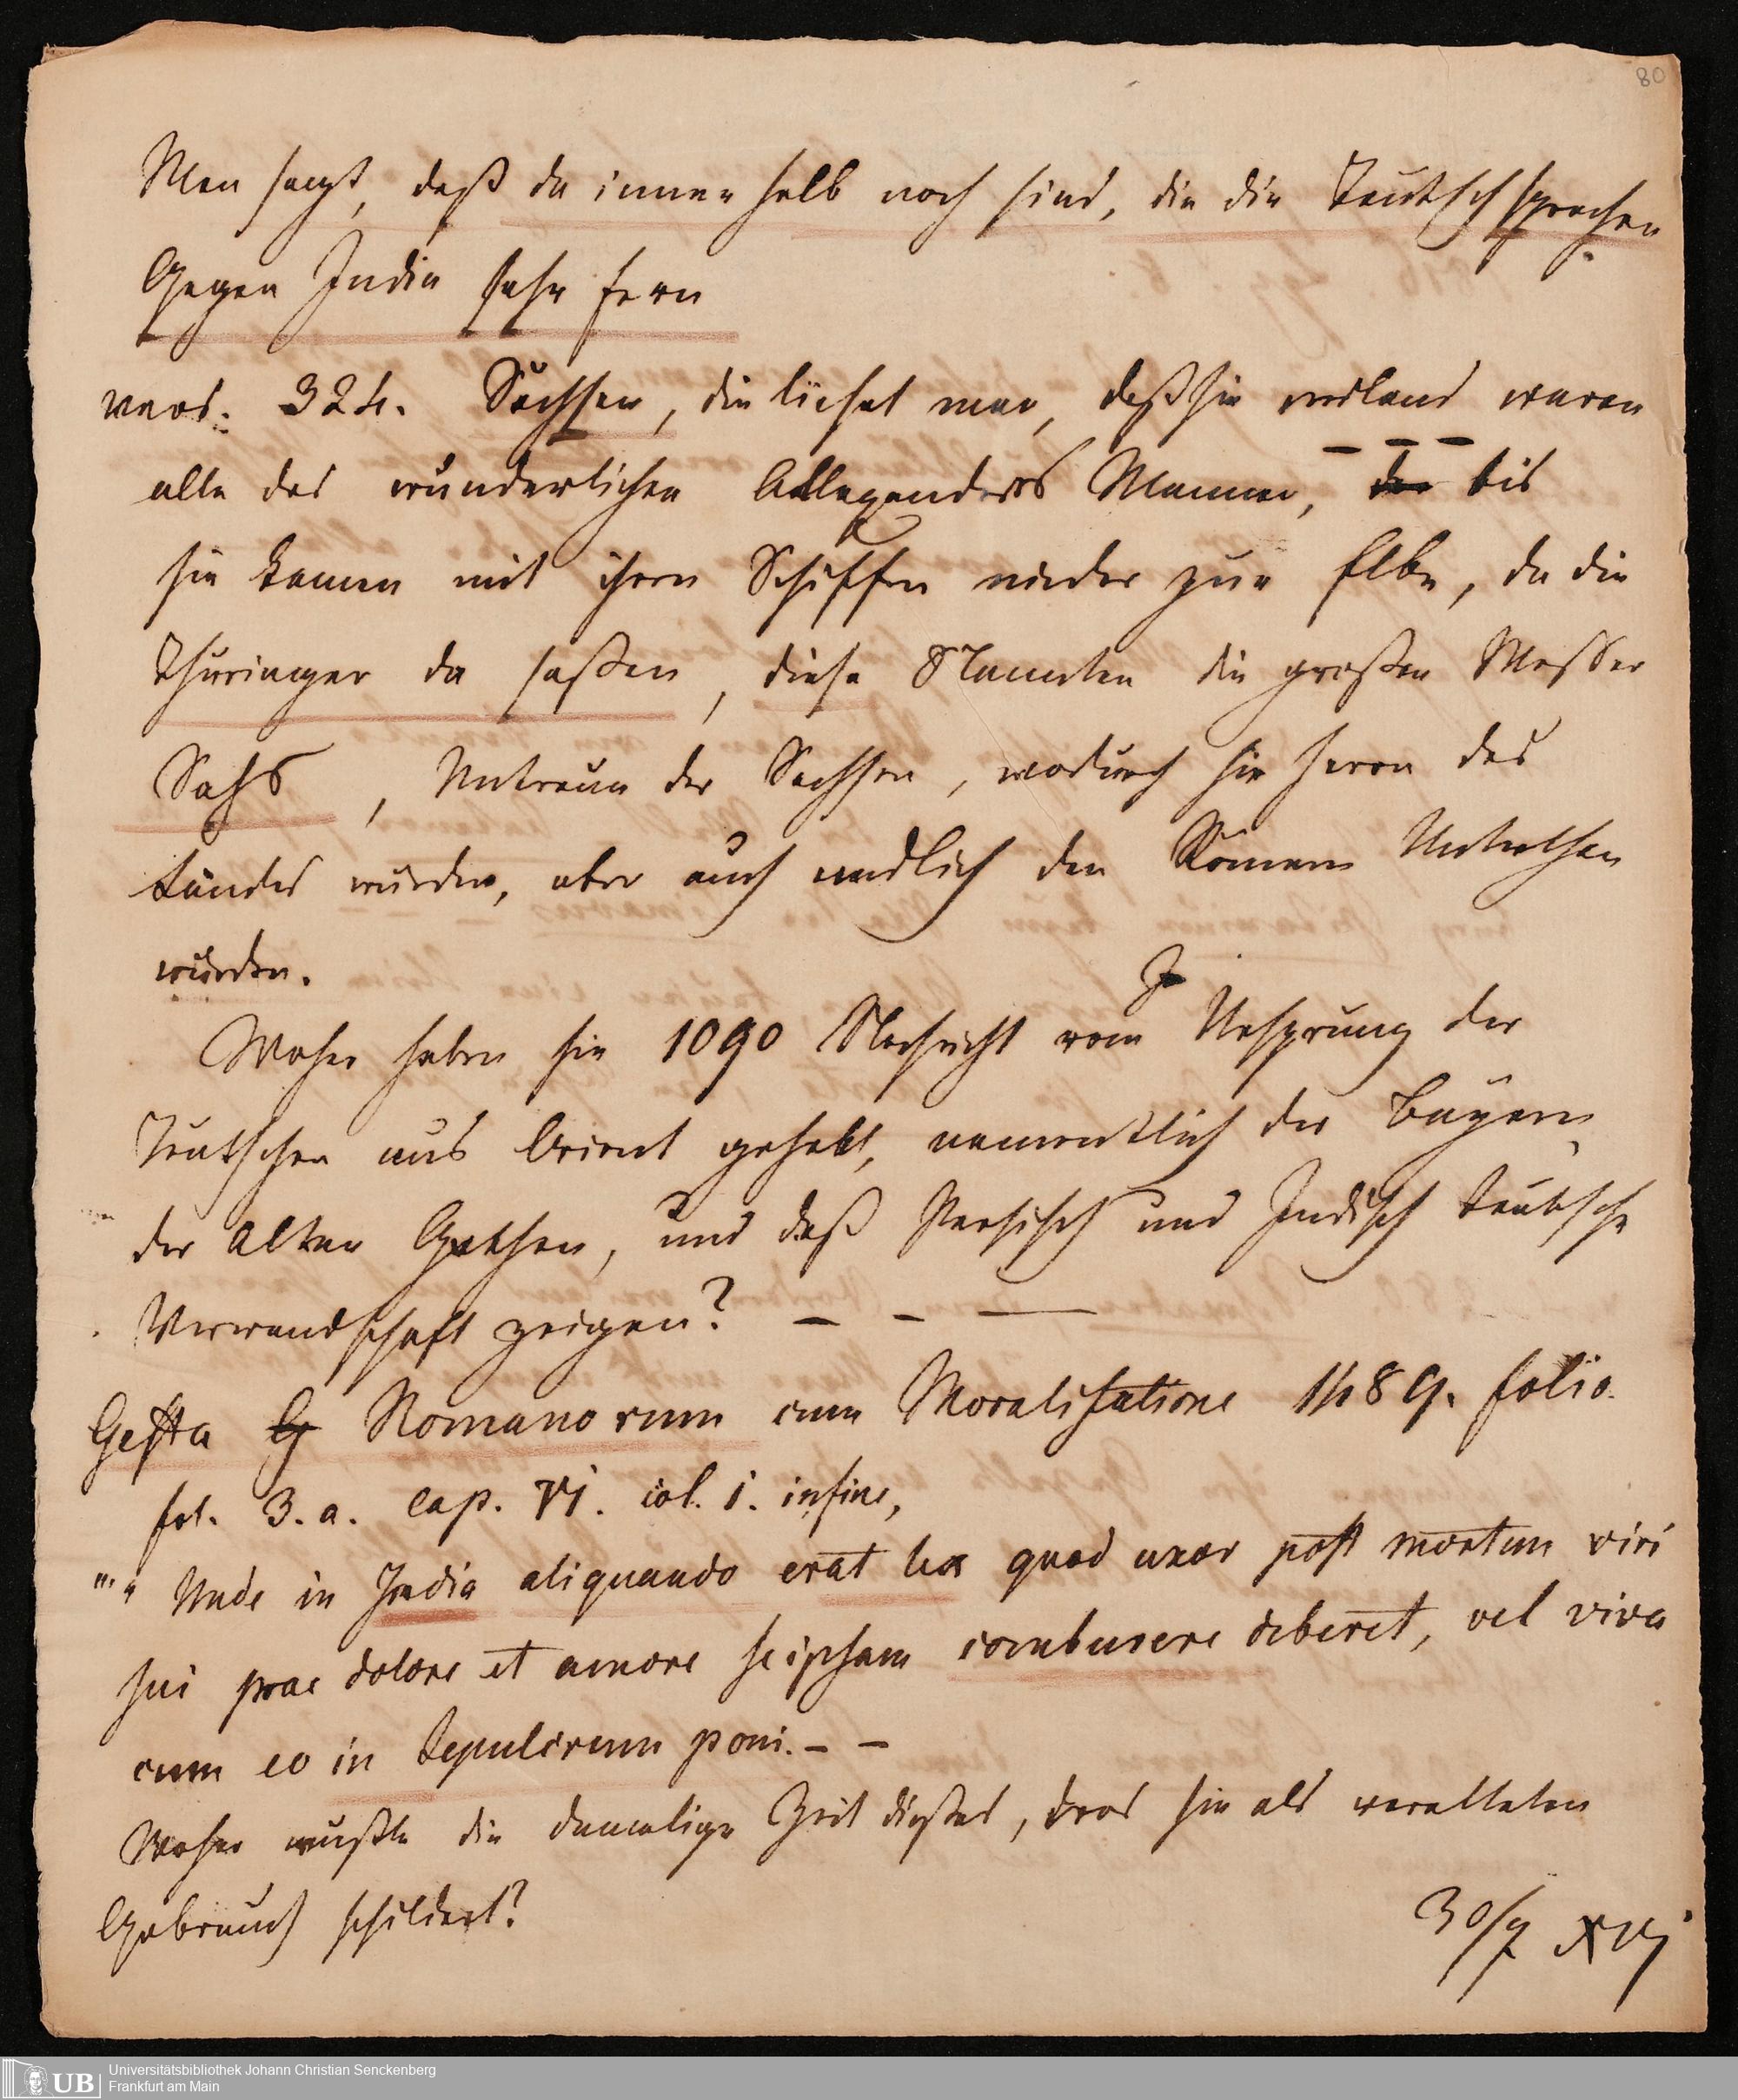 80
Man sagt, daß da innerhalb noch sind, die die Teutsch sprechen
Gegen India sehr fern
vers. 324. Sachsen, die lieset man, daß sie weiland waren
alle des wunderlichen Allexanders Manner, der bis
sie kamen mit ihren Schiffen nieder zur Elbe, da die
Thüringer da saßen, diese Nannten die großen Messer
Sahs, Untreue der Sachsen, wodurch sie Herrn des
Landes wurden, aber auch endlich den Römern Unterthan
wurden.
Woher haben sie 1090 Nachricht vom Ursprung der
Teutschen aus Orient gehabt, namentlich der Bayern,
der Alten Gothen, und daß Persisch und Indisch teutsche
Verwandschaft zeigen? – – —
Gesta G Romanorum cum Moralisatione 1489. folio.
fol. 3. a. cap. Vi. col. i. in fine,
"" Unde in India aliquando erat lex quod uxor post mortem viri
sui prae dolore et amore se ipsam comburere deberet, vel viva
cum eo in sepulcrum poni. – –
Woher wußte die damalige Zeit dießes, das sie als veralteten
Gebrauch schildert?
30/7 XVi
UB Universitätsbibliothek Johann Christian Senckenberg
Frankfurt am Main